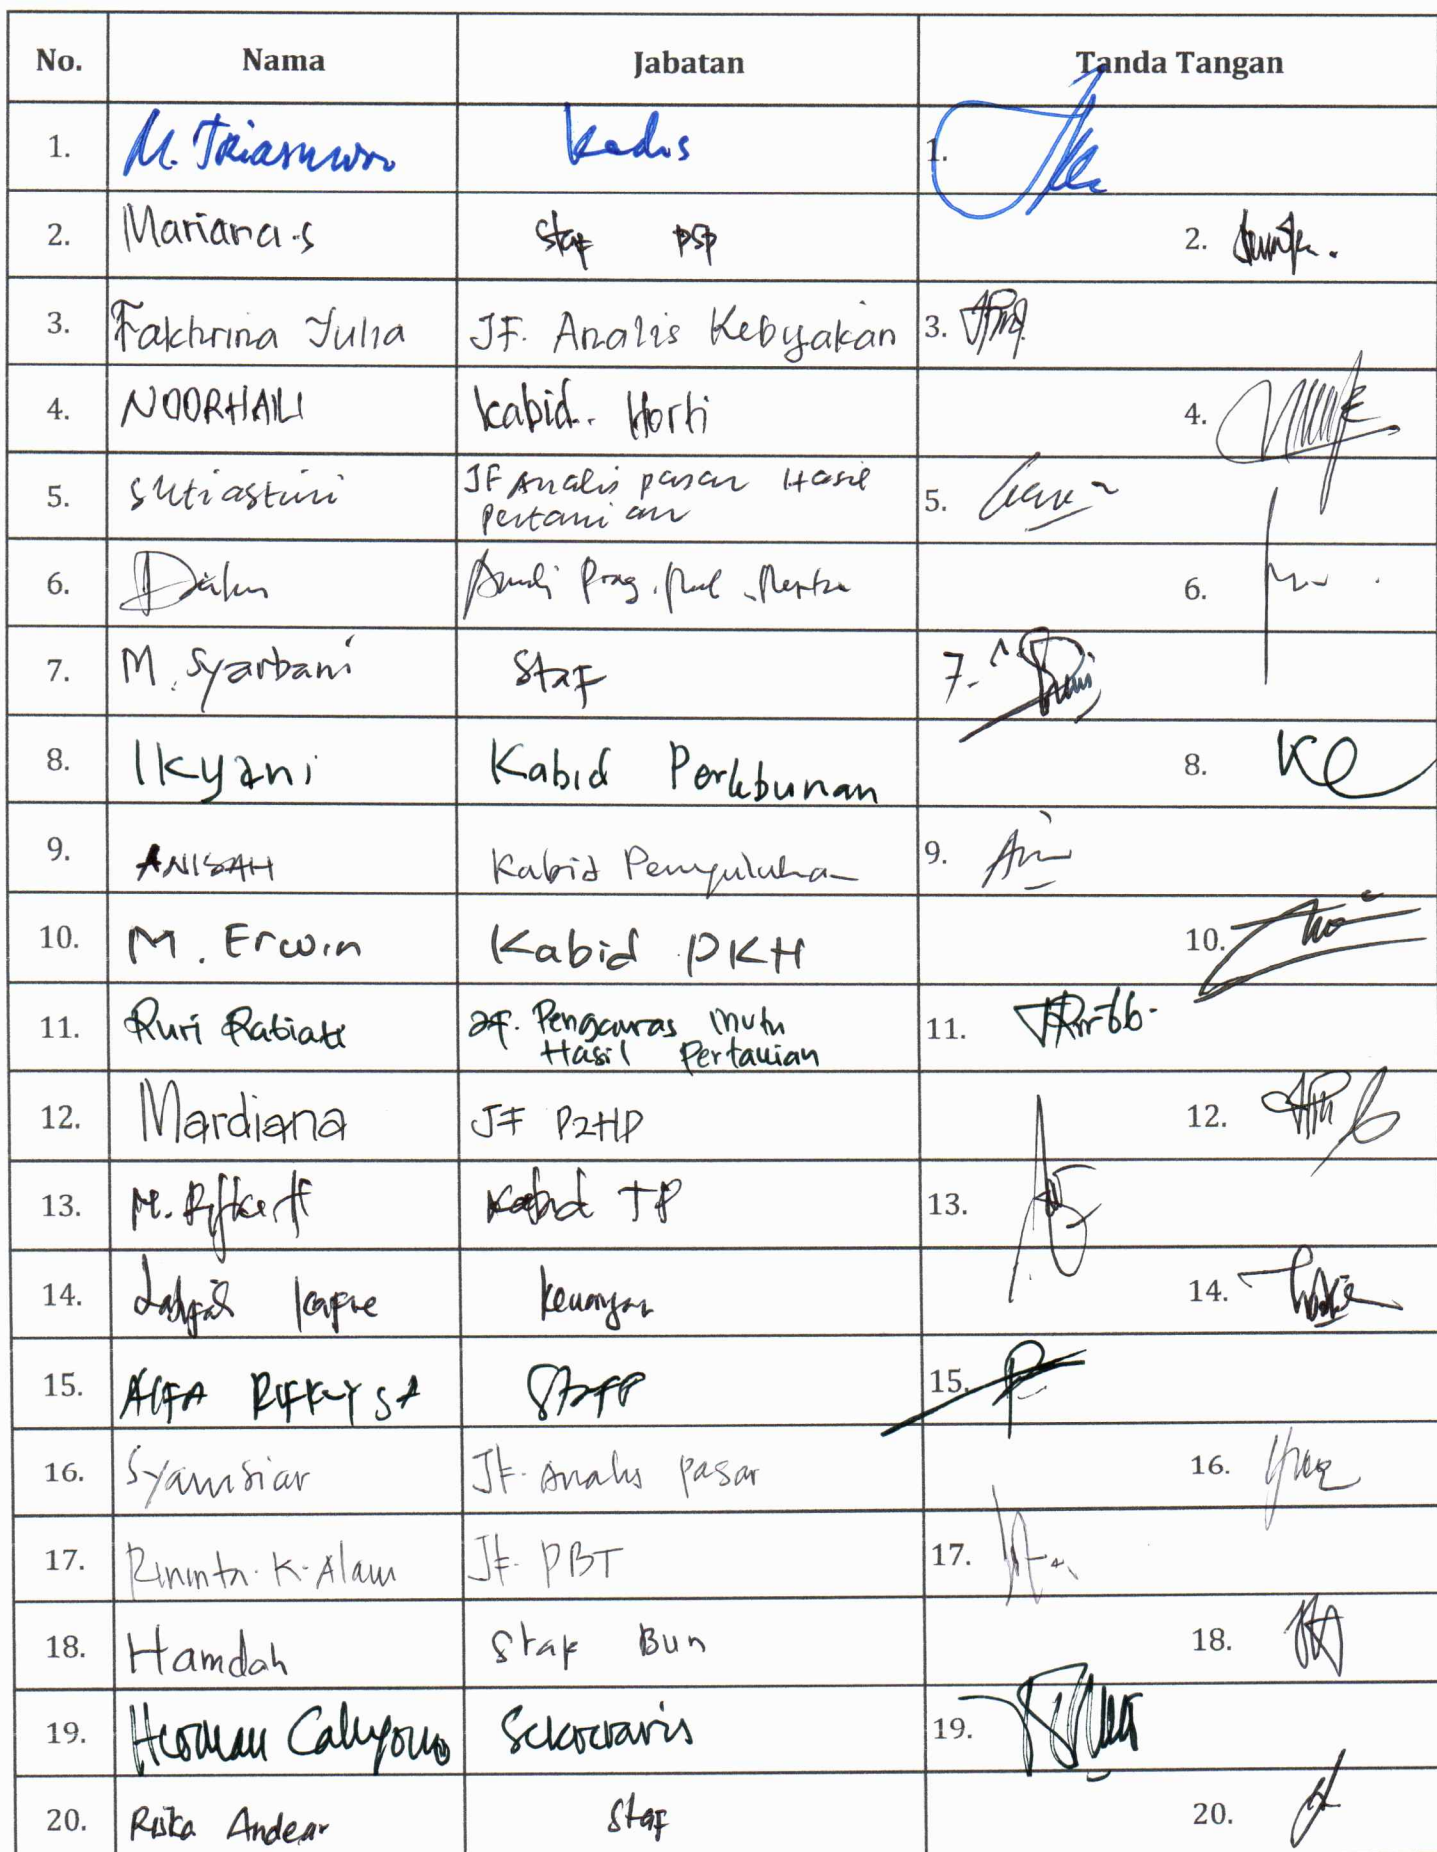 No. Nama Jabatan Tanda Tangan
1. M. Triasmoro Kadis 1.
2. Mariana.s Staf PSP 2.
3. Fakhrina Yulia JF. Analis Kebijakan 3.
4. NOORHAILI Kabid. Horti 4.
5. Sutiastini JF Analis pasar Hasil 5.
pertanian
6. 6.
7. M. Syarbani Staf 7.
8. Ikyani Kabid Perkebunan 8.
9. ANISAH Kabid Penyuluhan 9.
10. M. Erwin Kabid PKH 10.
11. Ruri Rabiati JF. Pengawas Mutu 11.
Hasil Pertanian
12. Mardiana JF P2HP 12.
13. M. Kabid TP 13.
14. Keuangan 14.
15. ALFA RIFKY SA Staff 15.
16. Syamsiar JF. Analis pasar 16.
17. K. Alam JF. PBT 17.
18. Hamdah Staf Bun 18.
19. Herman Cahyono Sekretaris 19.
20. Riska Andear Staf 20.